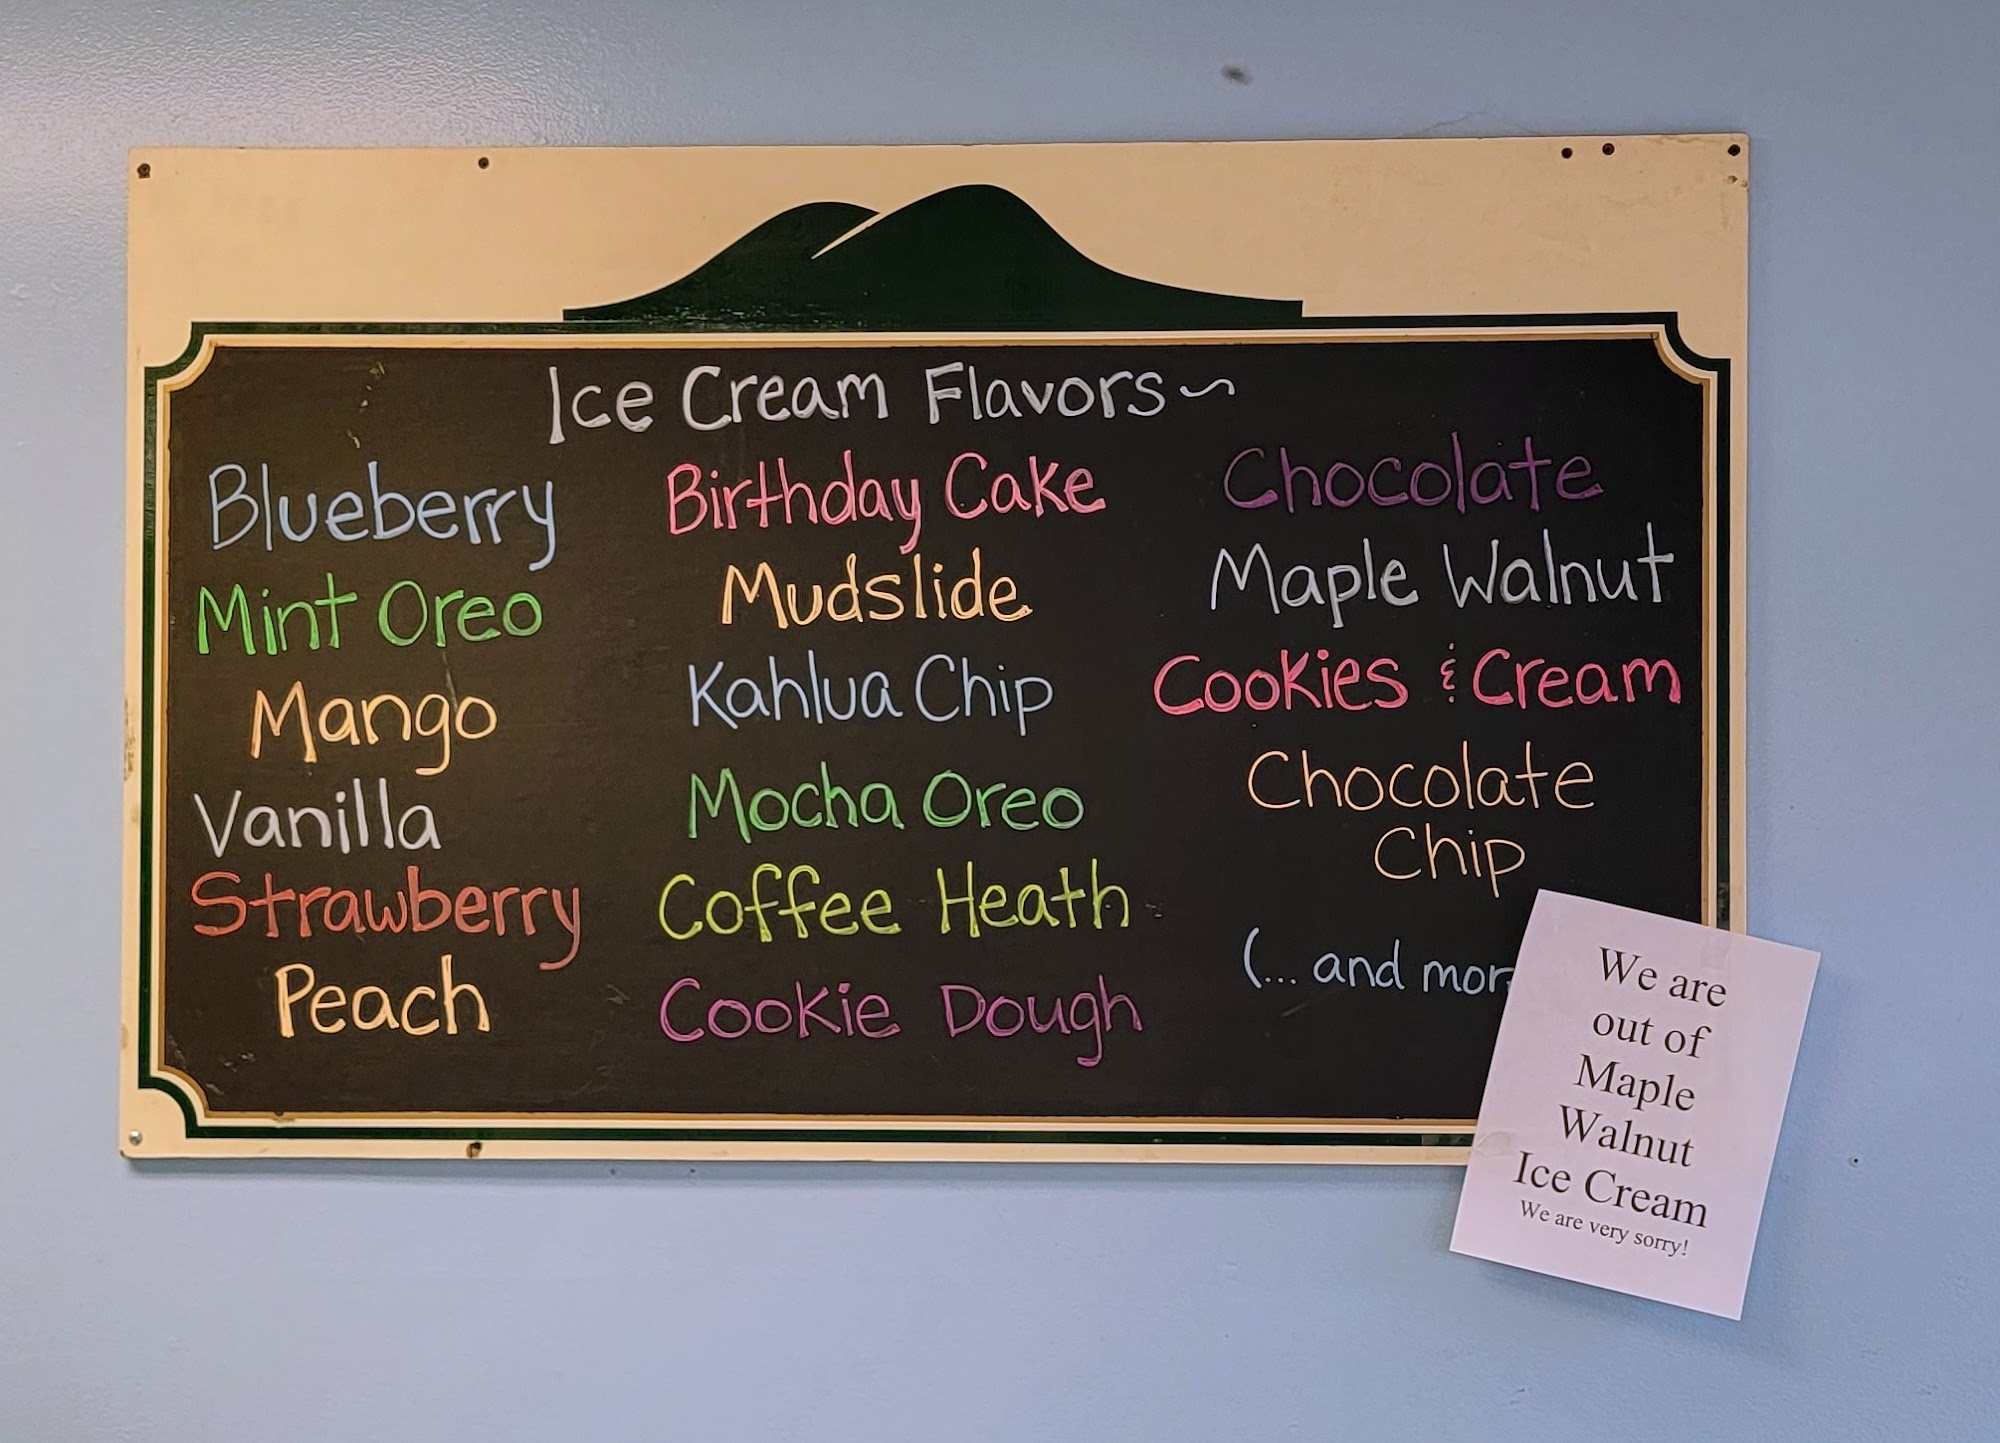 Ice Cream Flavors~
Blueberry
Mint Oreo
Mango
Vanilla
Strawberry
Peach
Birthday Cake
Mudslide
Kahlua Chip
Mocha Oreo
Coffee Heath
Cookie Dough
Chocolate
Maple Walnut
Cookies & Cream
Chocolate
Chip
(... and mor
We are
out of
Maple
Walnut
Ice Cream
We are very sorry!